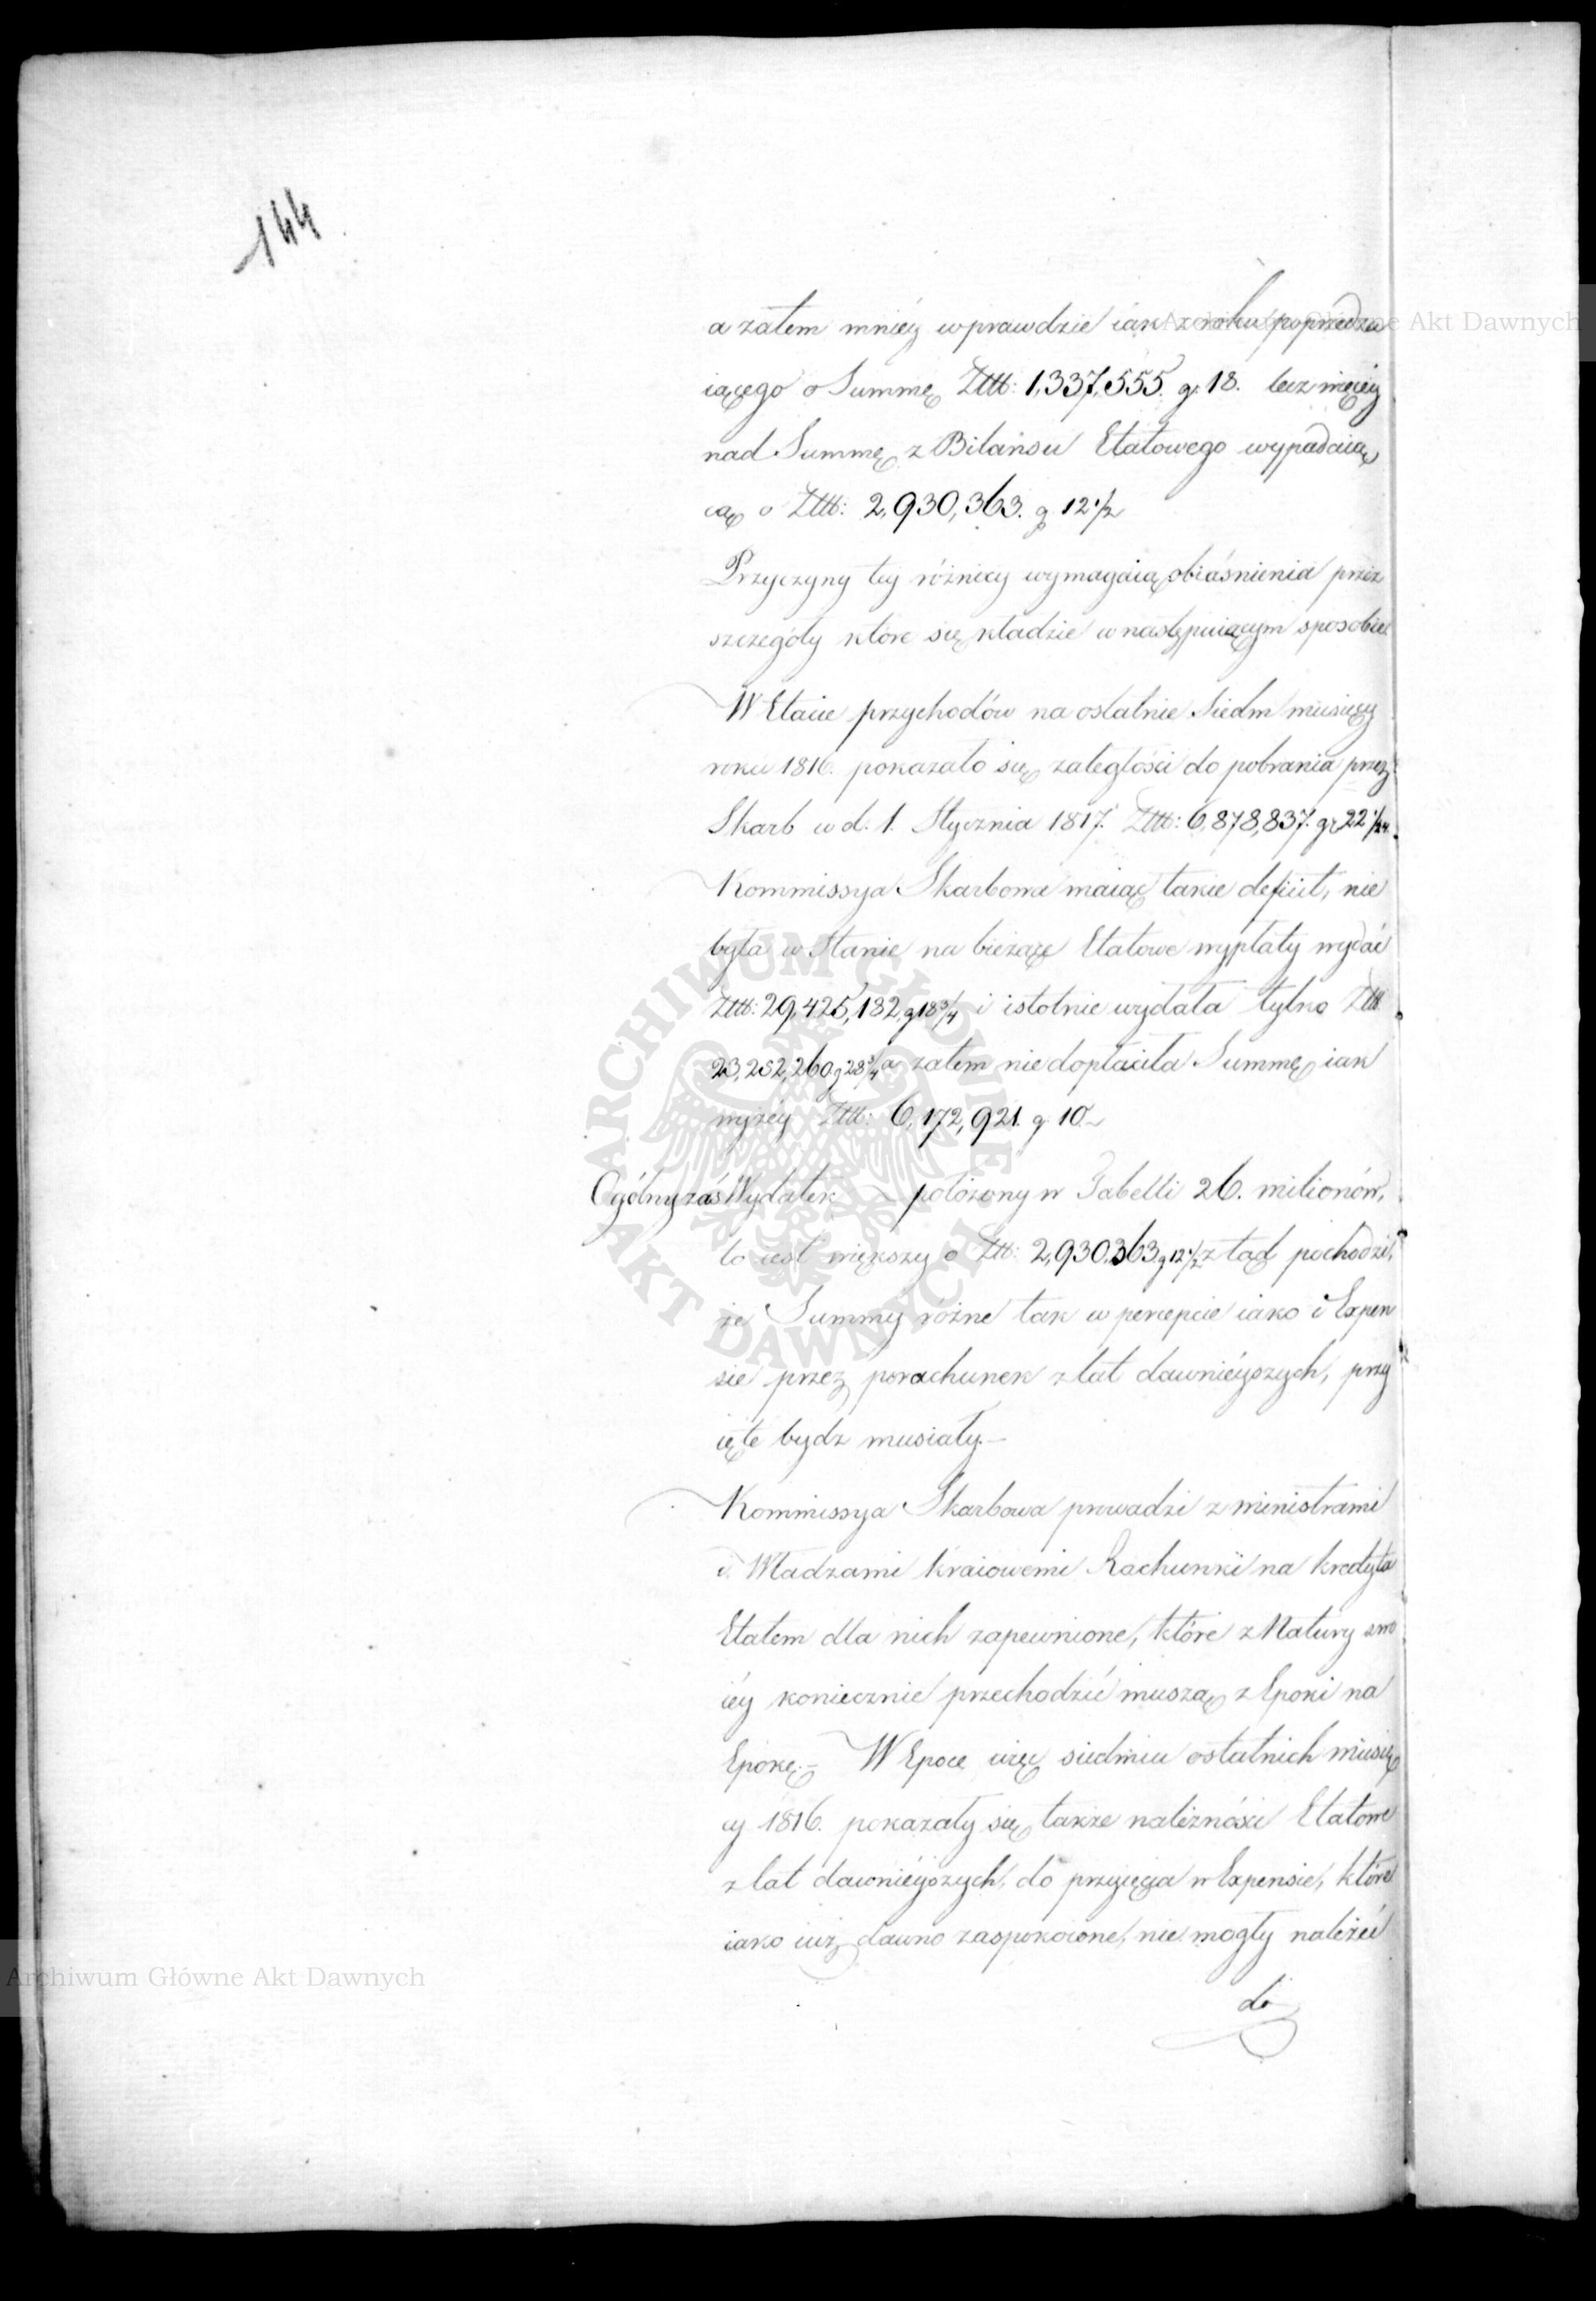 144
a zatem mniéy wprawdzie iak z roku poprzedza
iącego o Summę Złtt: 1,337,555. g. 18. lecz więcéy
nad Summę z Bilańsu Etatowego wypadaią
cą o Złtt: 2,930,363. g. 12 1/2
Przyczyny téy różnicy wymagaią obiaśnienia przez
szczegóły które się kładzie w następuiącym sposobie
W Etacie przychodów na ostatnie Siedm miesięcy
roku 1816. pokazało się zaległości do pobrania przez
Skarb w d. 1. Stycznia 1817. Złtt: 6,878,837. gr 22 1/24.
Kommissya Skarbowa maiąc takie deficit, nie
była w Stanie na bieżące Etatowe wypłaty wydać
Złtt: 29,425,182, g 18 3/4 i istotnie wydała tylko Złtt
23,252,260 g 28 3/4 a zatem niedopłaciła Summę iak
wyżéy Złtt: 6,172,921. g. 10 –
Ogólny zaś Wydatek – położony w Tabelli 26. milionów,
to iest większy o Złtt: 2,930,363 g 12 1/2 z tąd pochodzi,
że Summy różne tak w percepcie iako i Expen
sie przez porachunek z lat dawniéyszych, przy
ięte bydz musiały. –
Kommissya Skarbowa prowadzi z ministrami
i Władzami kraiowemi Rachunki na kredyta
Etatem dla nich zapewnione, które z Natury swo
iéy koniecznie przechodzić muszą z Epoki na
Epokę. – W Epoce więc siedmiu ostatnich miesię
cy 1816. pokazały się także należności Etatowe
z lat dawniéyszych, do przyięcia w Expensie, które
iako iuż dawno zaspokoione, nie mogły należeć
do
ARCHIWUM GŁÓWNE AKT DAWNYCH
Archiwum Główne Akt Dawnych
Archiwum Główne Akt Dawnych